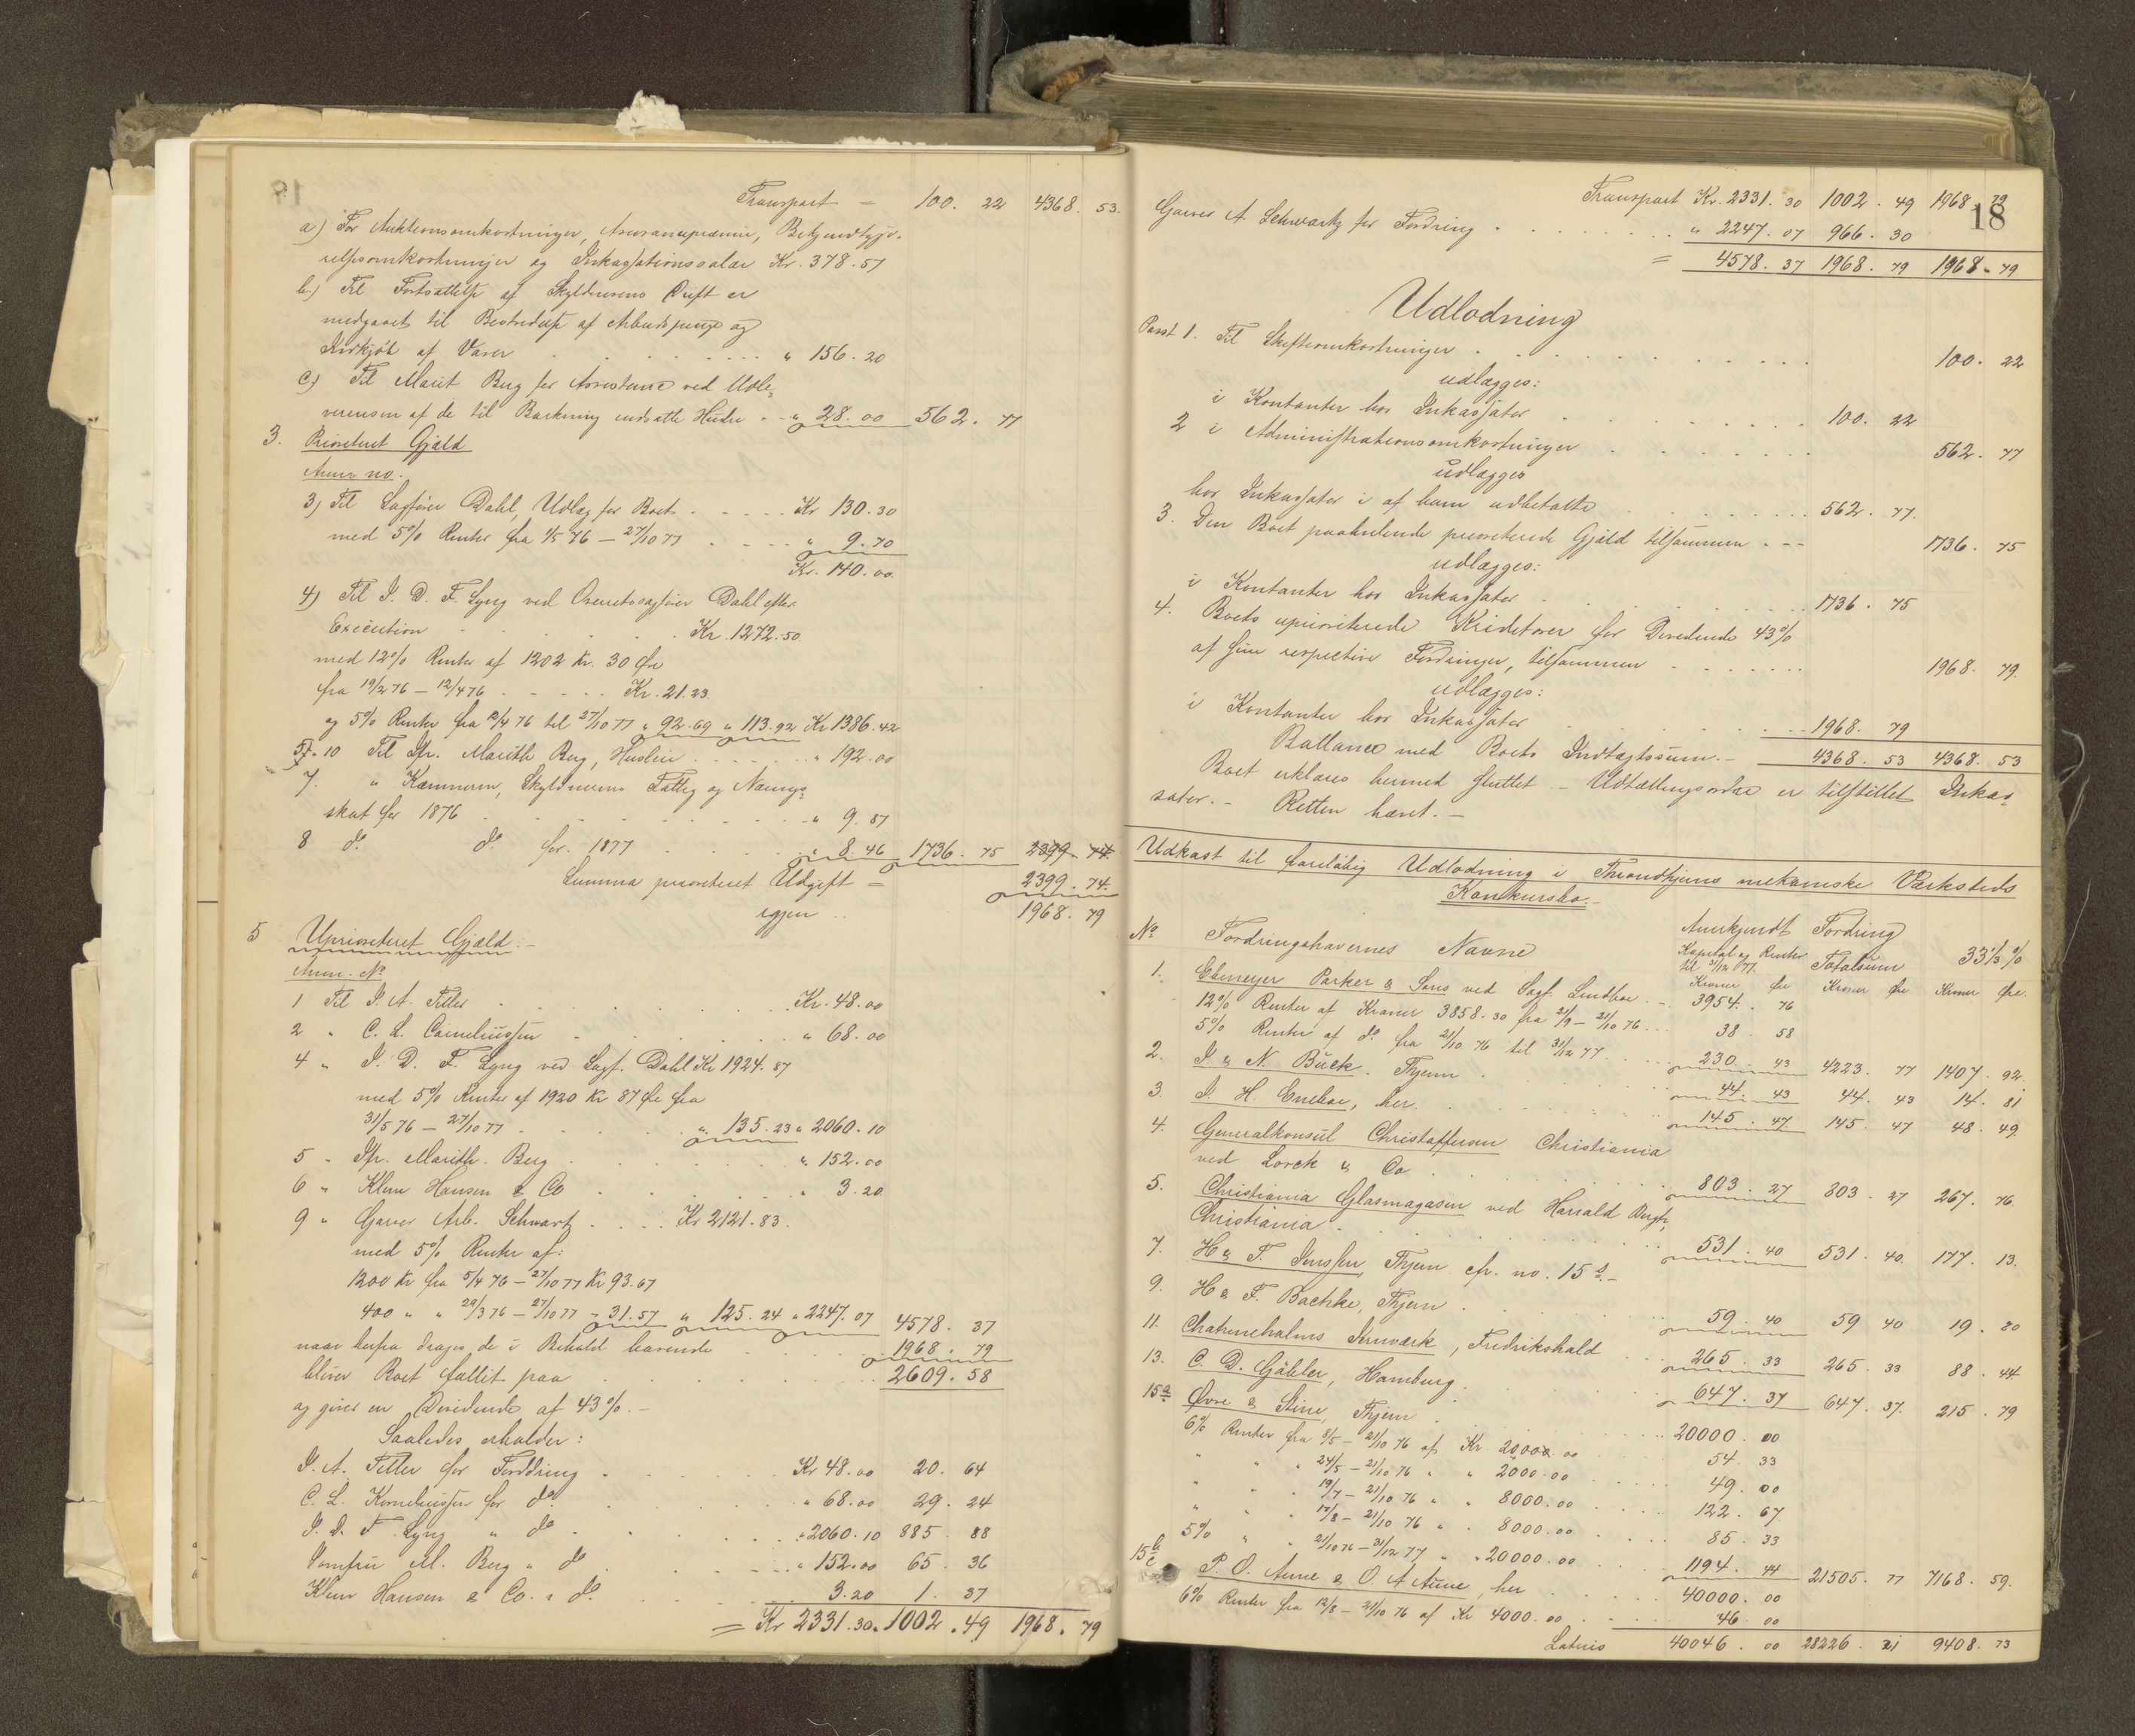 Transport = 100. 22 4368. 53.
a) For Auktionsomkostninger, Assurancepræmie, Bekjendtgjø-
relsesomkostninger og Inkassationssalær Kr. 378.57
b.) Til Fortsættelse af Skyldnerens Drift er
medgaaet til Bestridelse af Arbeidspenge og
Indkjøb af Varer " 156.20
c.) Til Marit Berg for Assistance ved Udle-
verensen af de til Barkning indsatte Huder " 28.00 562. 77
3. Prioriteret Gjæld
Anm no.
3) Til Sagfører Dahl, Udlæg for Boet Kr 130.30
med 5% Renter fra 1/5 76 – 27/10 77 " 9.70
Kr. 140.00.
4) Til I. D. F. Lyng ved Overretssagfører Dahl efter
Execution Kr. 1272.50
med 12% Renter af 1202 Kr. 30 Øre
fra 19/2 76 – 12/4 76 Kr. 21.23.
og 5% Renter fra 12/4 76 til 27/10 77 " 92.69 " 113.92 Kr 1386.42
10 Til Jfr. Marith Berg, Husleie " 192.00
7. " Kæmneren, Skyldnerens Fattig og Nærings-
skat for 1876 " 9.87
8 do do for 1877 " 8.46 1736. 75 2399. 74
Summa prioriteret Udgift = 2399. 74.
igjen 1968. 79
5 Uprioriteret Gjæld:-
Anm. No
1 Til I. A. Teller Kr. 48.00
2 " C. L. Corneliussen " 68.00
4 " I. D. F. Lyng ved Sagf. Dahl Kr 1924.87
med 5% Renter af 1920 Kr 87 Øre fra
31/5 76 – 27/10 77 " 135.23 " 2060.10
5 " Jfr. Marith. Berg " 152.00
6 " Klem Hansen & Co " 3.20
9 " Garver Arb. Schwartz Kr 2121.83.
med 5% Renter af:
1200 Kr fra 5/4 76 – 27/10 77 Kr 93.67
400 " " 29/3 76 – 27/10 77 " 31.57 " 125.24 " 2247.07 4578. 37
naar herfra drages de i Behold havende 1968. 79
bliver Boet fallit paa 2609. 58
og giver en Dividende af 43%.-
Saaledes erholder:
I. A. Teller for Fordring Kr 48.00 20. 64
C. L. Korneliussen for do " 68.00 29. 24
I. D. F Lyng " do " 2060.10 885. 88
Jomfru M. Berg " do " 152.00 65. 36
Klem Hansen & Co. " do 3.20 1. 37
= Kr 2331.30. 1002. 49 1968. 79
Transport Kr. 2331. 30 1002. 49 1968. 79
18
Garver A. Schwartz for Fordring " 2247. 07 966. 30
= 4578. 37 1968. 79 1968. 79
Udlodning
Post 1. Til Skifteomkostninger 100. 22
udlægges:
i Kontanter hos Inkassator 100. 22
2 i Administrationsomkostninger 562. 77
udlægges
hos Inkassator i af ham udbetalte 562. 77.
3. Den Boet paahvilende prioriterede Gjæld tilsammen 1736. 75
udlægges:
i Kontanter hos Inkassator 1736. 75
4. Boets uprioriterede Kreditorer for Dividende 43%
af sine respective Fordringer, tilsammen 1968. 79.
udlægges:
i Kontanter hos Inkassator 1968. 79
Ballance med Boets Indtægtssum.- 4368. 53 4368. 53
Boet erklæres hermed sluttet – Udtællingsordre er tilstillet Inkas-
sator.- Retten hævet.-
Udkast til foreløbig Udlodning i Throndhjems mekaniske Værksteds
Konkursbo.-
No Fordringshavernes Navne Anerkjendt Fordring
Kapital og Renter til 31/12 77. Totalsum 33 1/3 %
Kroner Øre Kroner Øre Kroner Øre.
1. Ebmeyer Parker & Sons ved Sagf. Lindboe 3954. 76
12% Renter af Kroner 3858.30 fra 21/9 – 21/10 76 38. 58
5% Renter af do fra 21/10 76 til 31/12 77 230. 43 4223. 77 1407. 92.
2. I & N. Buck. Thjem 44. 43 44. 43 14. 81
3. I. H. Eneboe, her. 145. 47 145. 47 48. 49.
4. Generalkonsul Christoffersen Christiania
ved Lorck & Co 803. 27 803. 27 267. 76.
5. Christiania Glasmagasin ved Harald
Christiania 531. 40 531. 40. 177. 13.
7. H & F. Jenssen, Thjem cfr. no. 15 d.- 59. 40 59 40 19. 80
9. H & F. Bachke, Thjem 265. 33 265. 33 88. 44
11. Chatrineholms Jernværk, Fredrikshald 647. 37 647. 37. 215. 79
13. C. D. Gäbler, Hamburg.
15a Øvre & Stine, Thjem 20000. 00
6% Renter fra 3/5 – 21/10 76 af Kr. 2000.00 54. 33
" " " 24/5 – 21/10 76 " " 2000.00 49. 00
" " " 19/7 – 21/10 76 " " 8000.00 122. 67.
" " " 17/8 – 21/10 76 " " 8000.00 85. 33
5% " " 21/10 76 – 31/12 77 " " 20000.00 1194. 44 21505. 77 7168. 59.
15b c P. O. Aune & O. A Aune, her 40000. 00
6% Renter fra 12/8 – 21/10 76 af Kr 4000.00 46. 00
Lateris 40046. 00 28226. 21 9408. 73